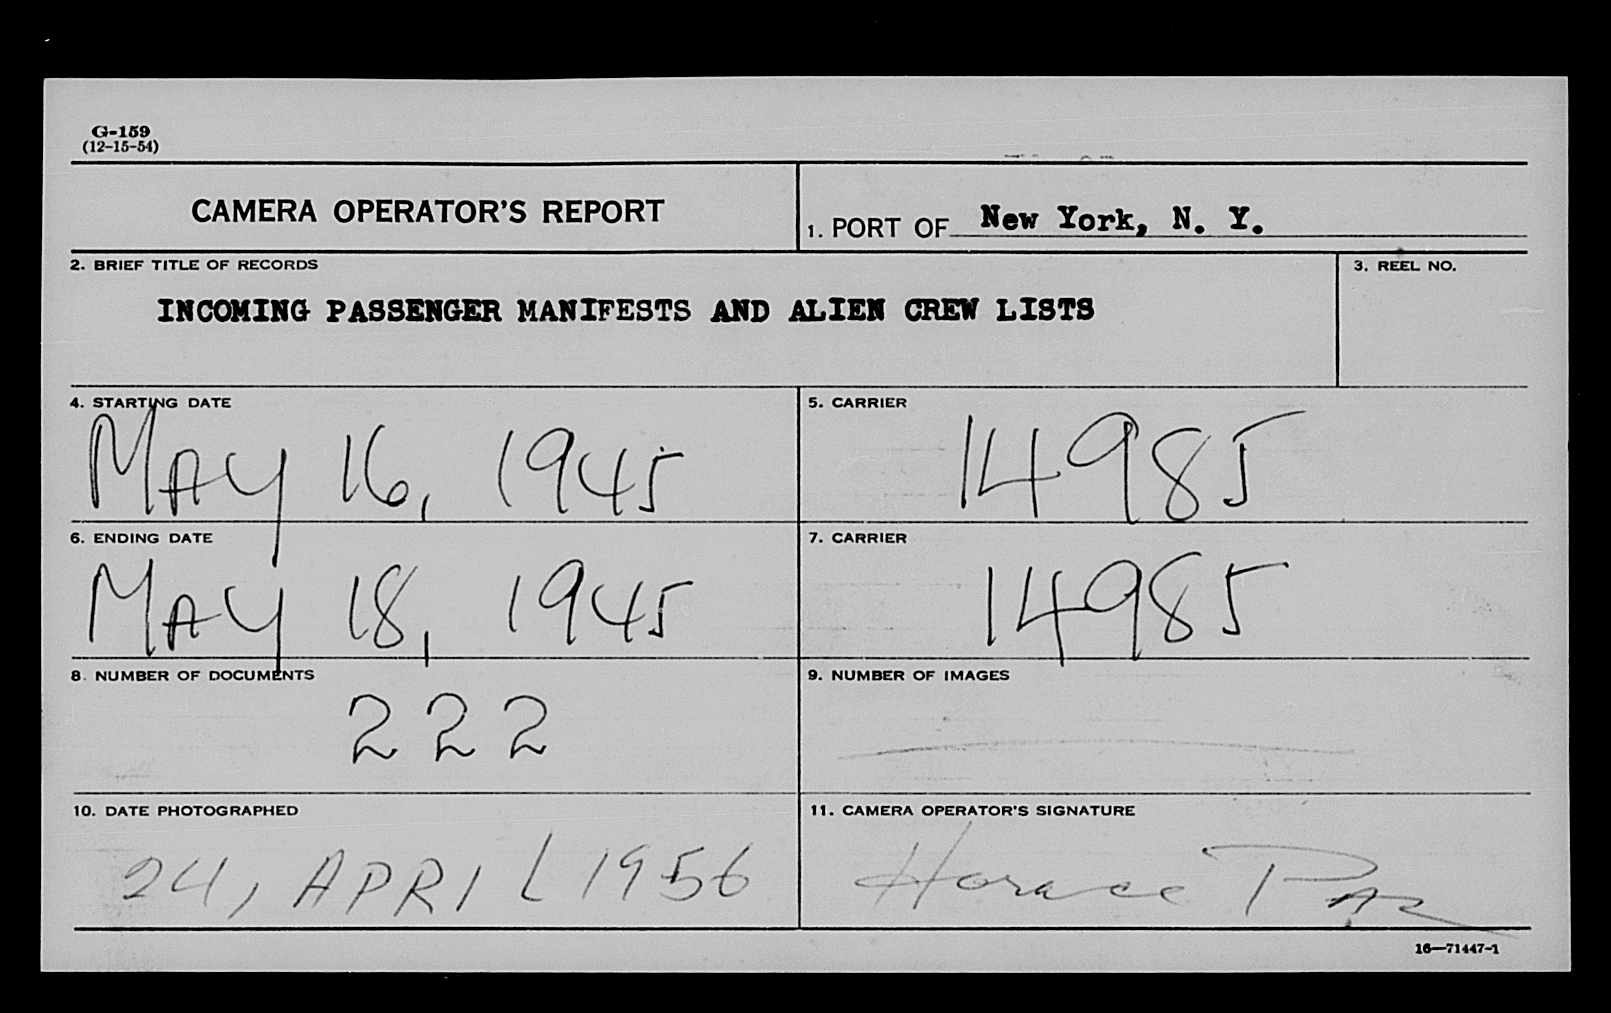 G-159
(12-15-54)
CAMERA OPERATOR'S REPORT
1. PORT OF New York, N. Y.
2. BRIEF TITLE OF RECORDS
3. REEL NO.
INCOMING PASSENGER MANIFESTS AND ALIEN CREW LISTS
4. STARTING DATE
5. CARRIER
MAY 16, 1945
14985
6. ENDING DATE
7. CARRIER
MAY 18, 1945
14985
8. NUMBER OF DOCUMENTS
9. NUMBER OF IMAGES
222
10. DATE PHOTOGRAPHED
11. CAMERA OPERATOR'S SIGNATURE
24, APRIL 1956
Horace
16—71447-1